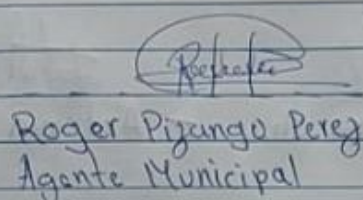 Roger Pizango Perez
Agente Municipal